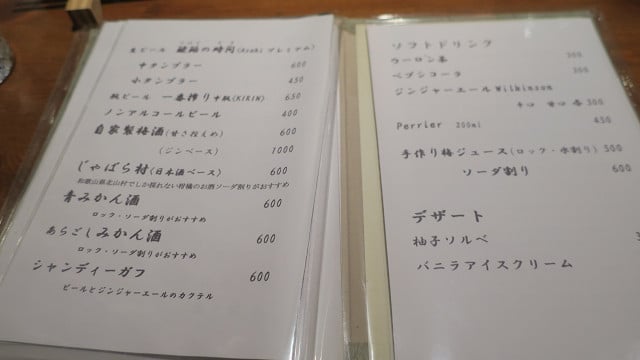 生ビール 琥珀の時間(Asahi プレミアム)
中タンブラー 600
小タンブラー 450
瓶ビール 一番搾り 中瓶(KIRIN) 650
ノンアルコールビール 400
自家製梅酒(甘さ控えめ) 600
(ジンベース) 1000
じゃばら村(日本酒ベース) 600
和歌山県北山村でしか採れない柑橘のお酒ソーダ割りがおすすめ
青みかん酒 600
ロック・ソーダ割がおすすめ
あらごしみかん酒 600
ロック・ソーダ割りがおすすめ
シャンディーガフ 600
ビールとジンジャーエールのカクテル
ソフトドリンク
ウーロン茶 300
ペプシコーラ 300
ジンジャーエール Wilkinson
辛口 甘口 各300
Perrier 200ml 450
手作り梅ジュース(ロック・水割り) 500
ソーダ割り 600
デザート
柚子ソルベ
バニラアイスクリーム